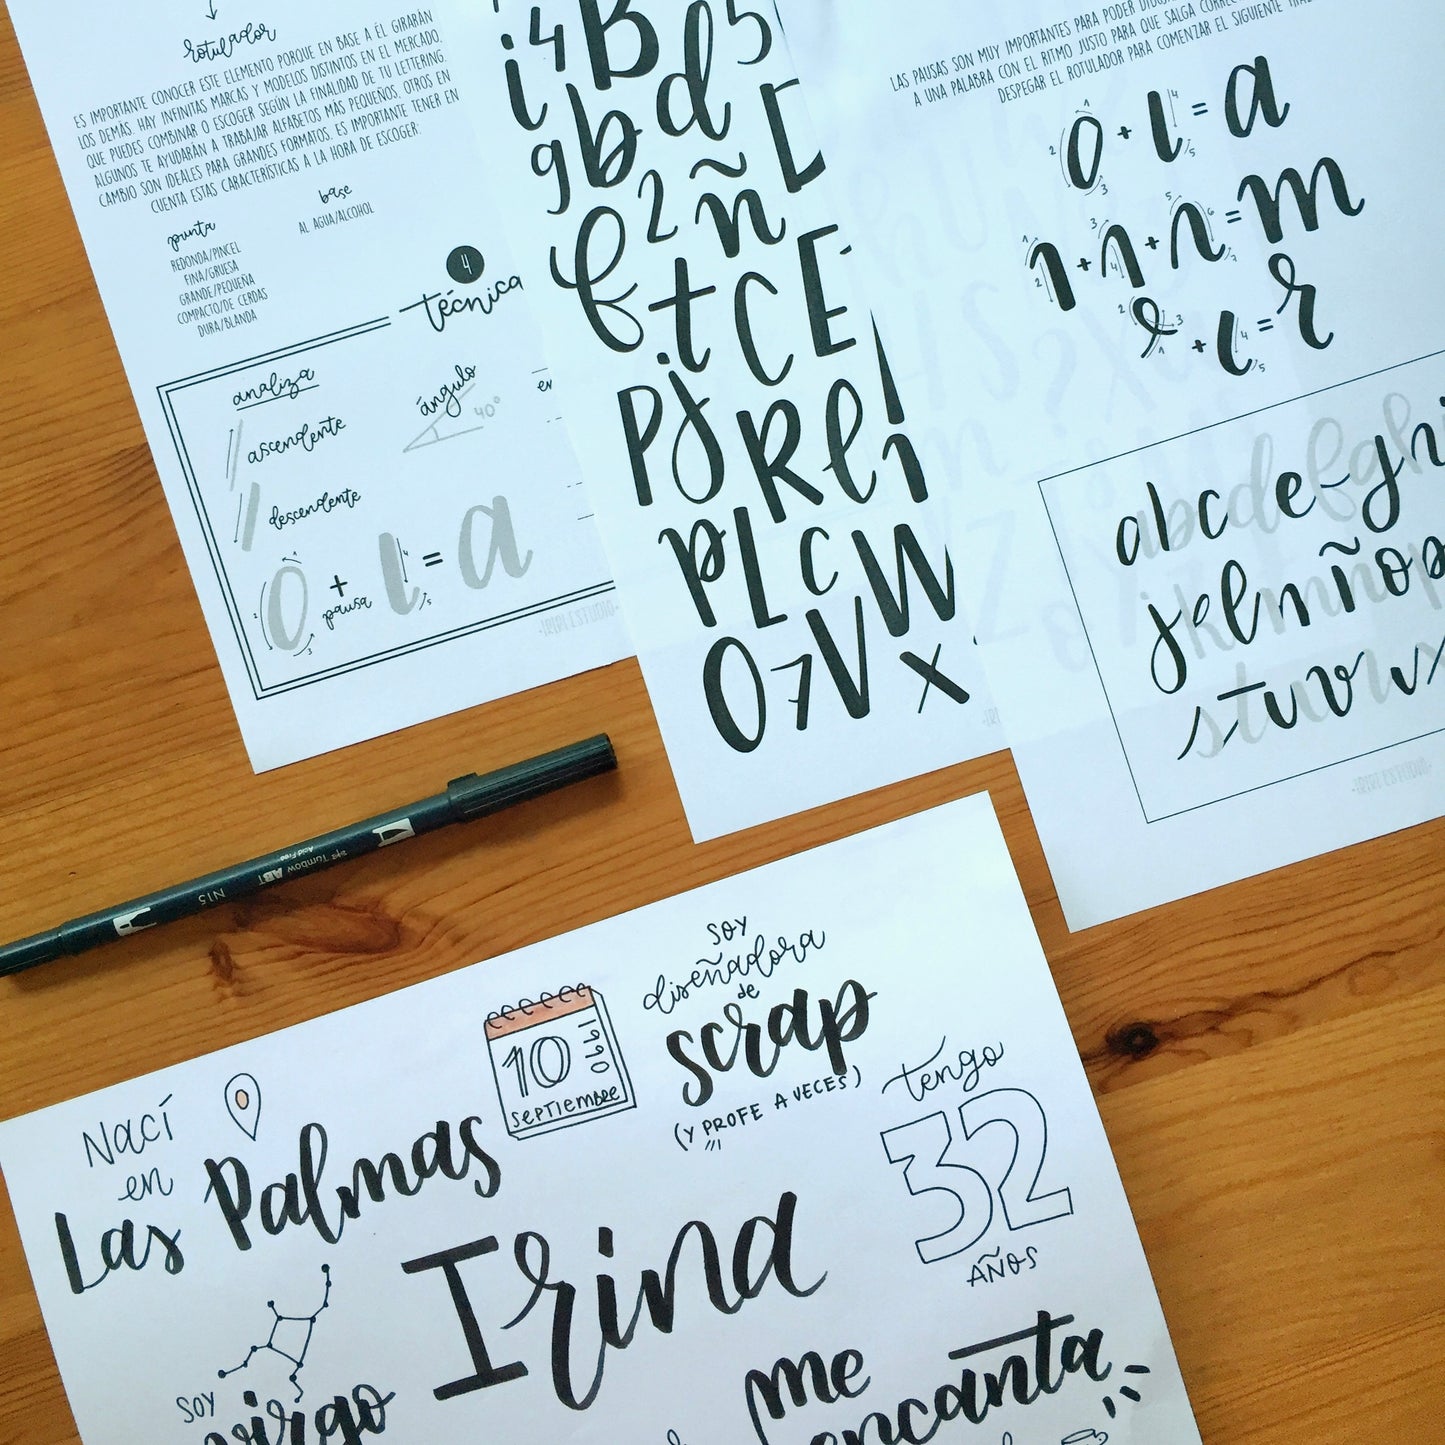 rotulador
ES IMPORTANTE CONOCER ESTE ELEMENTO PORQUE EN BASE A ÉL GIRARÁN
LOS DEMÁS. HAY INFINITAS MARCAS Y MODELOS DISTINTOS EN EL MERCADO,
QUE PUEDES COMBINAR O ESCOGER SEGÚN LA FINALIDAD DE TU LETTERING.
ALGUNOS TE AYUDARÁN A TRABAJAR ALFABETOS MÁS PEQUEÑOS, OTROS EN
CAMBIO SON IDEALES PARA GRANDES FORMATOS. ES IMPORTANTE TENER EN
CUENTA ESTAS CARACTERÍSTICAS A LA HORA DE ESCOGER:
punta
REDONDA/PINCEL
FINA/GRUESA
GRANDE/PEQUEÑA
COMPACTO/DE CERDAS
DURA/BLANDA
base
AL AGUA/ALCOHOL
4
técnica
analiza
ascendente
descendente
ángulo
40°
1 2 3 + pausa 4 5 = a
IRIRI ESTUDIO
i 4 B 5
g b d
2 ñ
f t C E
P j R l 1
p L c W
0 7 V x
LAS PAUSAS SON MUY IMPORTANTES PARA PODER
A UNA PALABRA CON EL RITMO JUSTO PARA QUE SALGA
DESPEGAR EL ROTULADOR PARA COMENZAR EL SIGUIENTE
1 2 3 + 4 5 = a
1 2 + 3 4 + 5 6 7 = m
1 2 3 + 4 5 = r
a b c d e f g h i
j k l m n ñ o p
s t u v w x
IRIRI ESTUDIO
Tombow ABT
Acid Free
N15
Nací
en
Las Palmas
10
1990
septiembre
soy
diseñadora
de
scrap
(y profe a veces)
tengo
32
años
Irina
soy
virgo
me
encanta